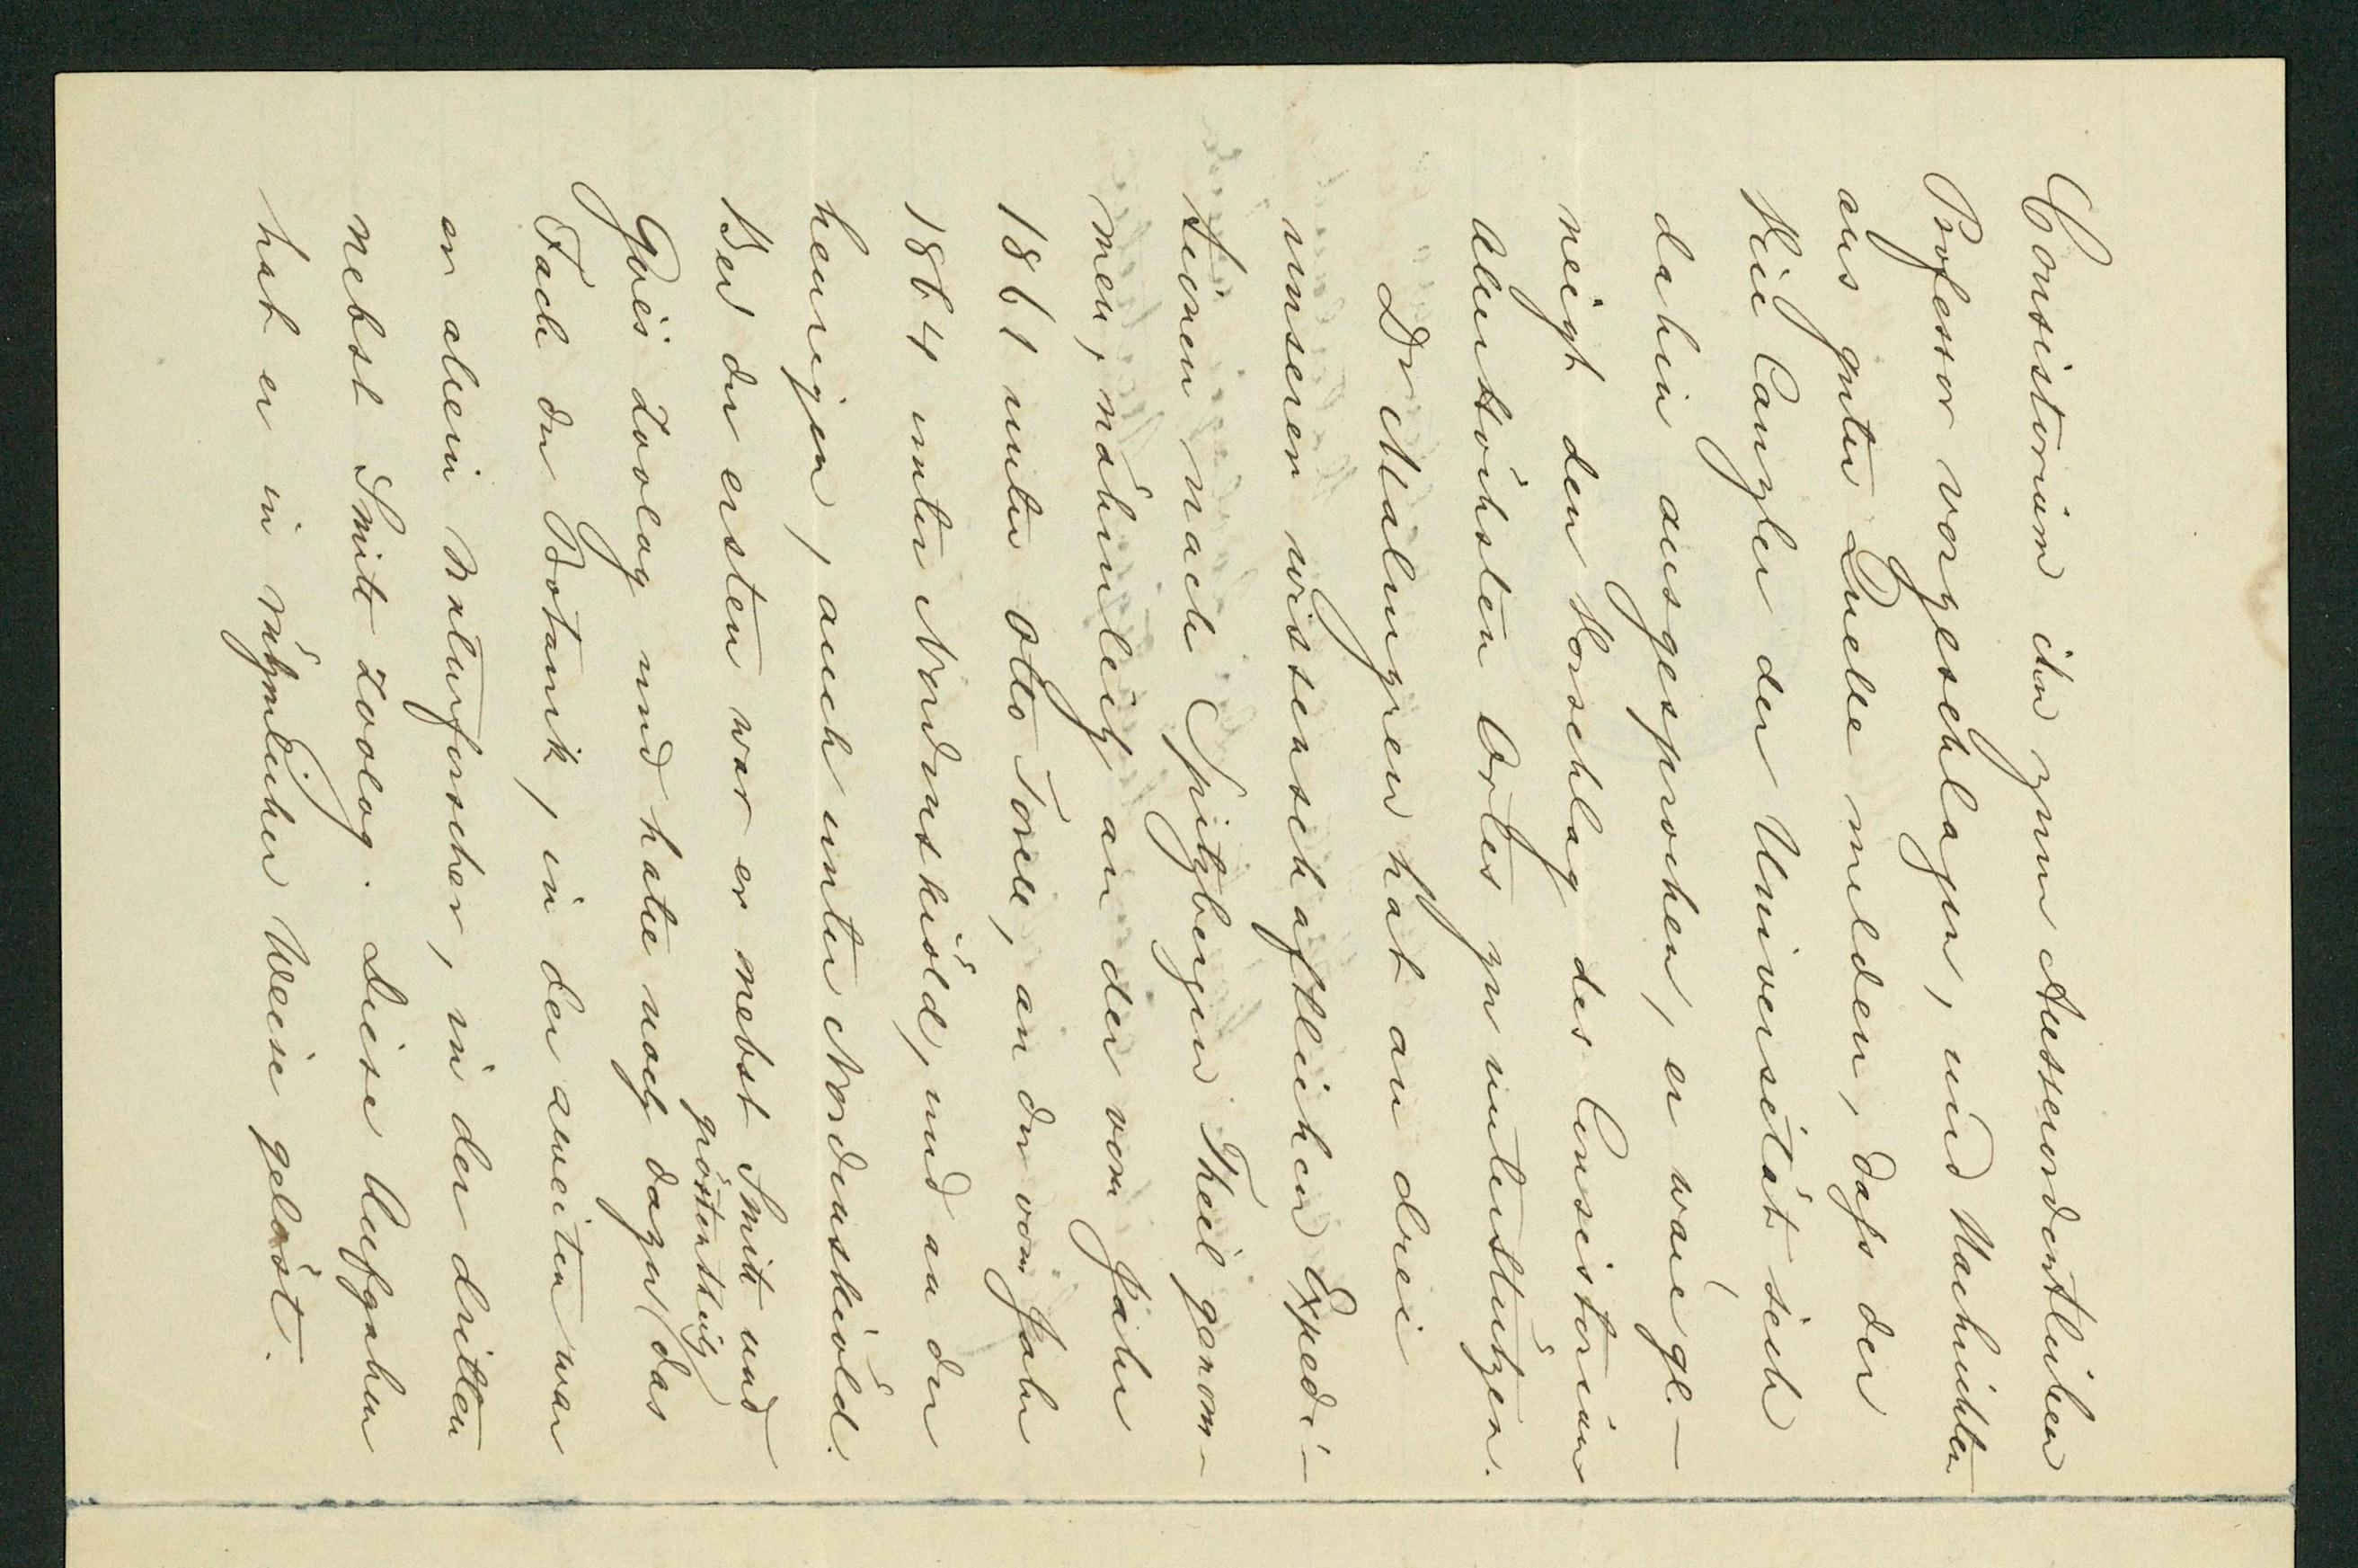 Consistorium ihn zum Ausserordentlichen
Professor vorgeschlagen, und Nachrichten
aus guter Quelle melden, dafs der
Vice Canzler der Universität sich
dahin ausgesprochen, er wäre ge-
neigt den Vorschlag des Consistorium
Allerhöchsten Ortes zu unterstützen.
Dr Malmgren hat an drei
unserer wissenschaftlichen Expedi-
tionen nach Spitzbergen Theil genom-
men, nähmlich an der vom Jahr
1861 unter Otto Torell, an der vom Jahr
1864 unter Nordenskiöld, und an der
heurigen, auch unter Nordenskiöld.
Bei der ersten war er nebst Smitt und
Goës Zoolog und hatte noch dazu grösstentheils das
Fach der Botanik, in der zweiten war
er allein Naturforscher, in der dritten
nebst Smitt Zoolog. Diese Aufgaben
hat er in rühmlicher Weise gelöst.